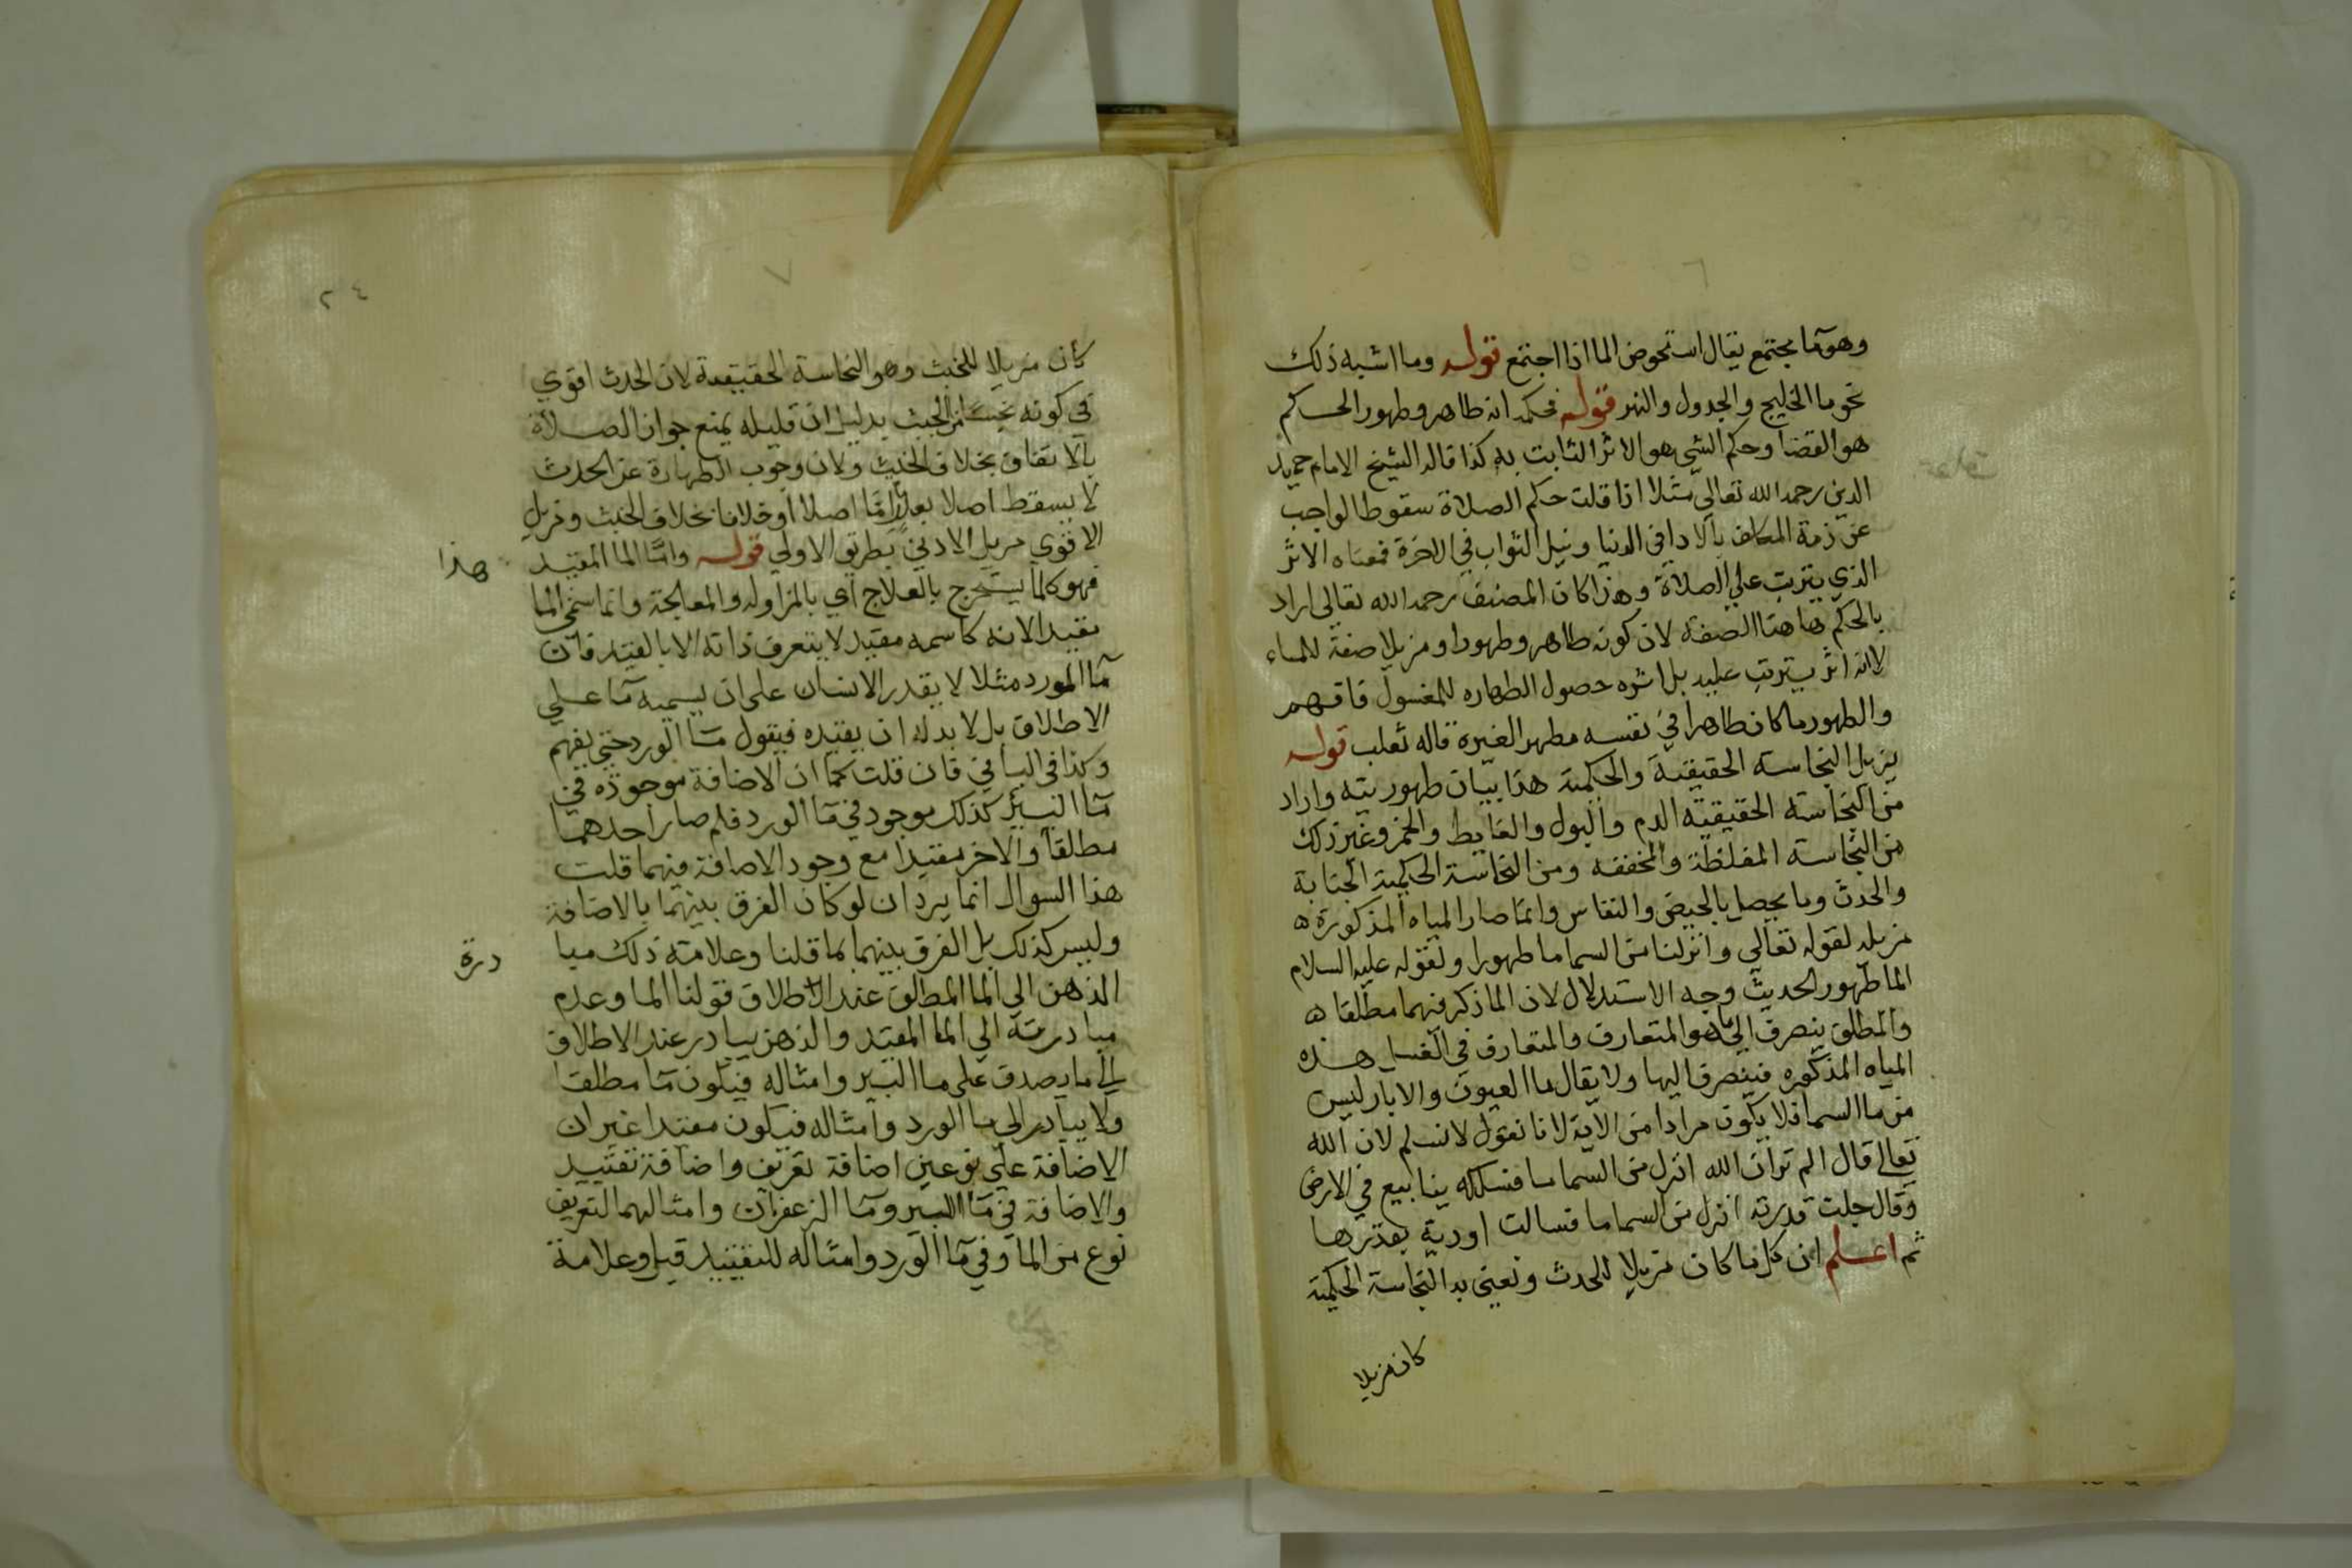 وهو ما يجتمع يقال استحوض الما اذا اجتمع قوله وما اشبه ذلك
نحو ما الخليج والجدول والنهر قوله فحكمه انه طاهر وطهور الحكم
هو القضا وحكم الشي هو الاثر الثابت به كذا قاله الشيخ الامام حميد
الدين رحمه الله تعالي مثلا اذا قلت حكم الصلاة سقوط الواجب
عن ذمة المكلف بالادا في الدنيا ونيل الثواب في الاخرة فمعناه الاثر
الذي يترتب علي الصلاة وهذا كان المصنف رحمه الله تعالي اراد
بالحكم هاهنا الصفة لان كونه طاهر وطهورا ومزيلا صفة للماء
لا انه اثر يترتب عليه بل اثره حصول الطهاره للمغسول فافهم
والطهور ما كان طاهرا في نفسه مطهرا لغيره قاله ثعلب قوله
يزيل النجاسة الحقيقية والحكمية هذا بيان طهوريته واراد
من النجاسة الحقيقيه الدم والبول والغايط والخمر وغير ذلك
من النجاسة المغلظة والمخففه ومن النجاسة الحكمية الجنابة
والحدث وما يحصل بالحيض والنفاس وانما صار المياه المذكورة ه
مزيله لقوله تعالي وانزلنا من السما ما طهورا ولقوله عليه السلام
الما طهور الحديث وجه الاستدلال لان الما ذكر فيهما مطلقا ه
والمطلق ينصرف الي ما هو المتعارف والمتعارف في الغسل هذه
المياه المذكوره فينصرف اليها ولا يقال ما العيون والابار ليس
من ما السما فلا يكون مرادا من الاية لانا نقول لا نسلم لان الله
تعالي قال الم تر ان الله انزل من السما ما فسلكه ينابيع في الارض
وقال جلت قدرته انزل من السما ما فسالت اودية بقدرها
ثم اعلم ان كل ما كان مزيلا للحدث ونعني به النجاسة الحكمية
كان مزيلا
٢٤
٧
كان مزيلا للخبث وهو النجاسة الحقيقية لان الحدث اقوي
في كونه نجسا من الخبث بدليل ان قليله يمنع جواز الصلاة
بالاتفاق بخلاف الخبث ولان وجوب الطهارة عن الحدث
لا يسقط اصلا بعذر اما اصلا او خلافا بخلاف الخبث ومزيل
الاقوي مزيل الادني بطريق الاولي قوله واما الما المقيد هذا
فهو كلما يستخرج بالعلاج اي بالمزاوله والمعالجة وانما سمي الما
مقيدا لانه كاسمه مقيد لا يتعرف ذاته الا بالقيد فان
ما الورد مثلا لا يقدر الانسان علي ان يسميه ما علي
الاطلاق بل لا بد له ان يقيده فيقول ما الورد حتي يفهم
وكذا في الباقي فان قلت كما ان الاضافة موجوده في
ما البير كذلك موجود في ما الورد فلم صار احدهما
مطلقا والاخر مقيدا مع وجود الاضافة فيهما قلت
هذا السوال انما يرد ان لو كان الفرق بينهما بالاضافة
وليس كذلك بل الفرق بينهما لما قلنا وعلامة ذلك مبا درة
الذهن الي الما المطلق عند الاطلاق قولنا الما وعدم
مبادرته الي الما المقيد والذهن يبادر عند الاطلاق
الي ما يصدق علي ما البير وامثاله فيكون ما مطلقا
ولا يبادر الي ما الورد وامثاله فيكون مقيدا غير ان
الاضافة علي نوعين اضافة تعريف واضافة تقييد
والاضافة في ما البير وما الزعفران وامثالهما لتعريف
نوع من الما وفي ما الورد وامثاله للتقييد قيل وعلامة